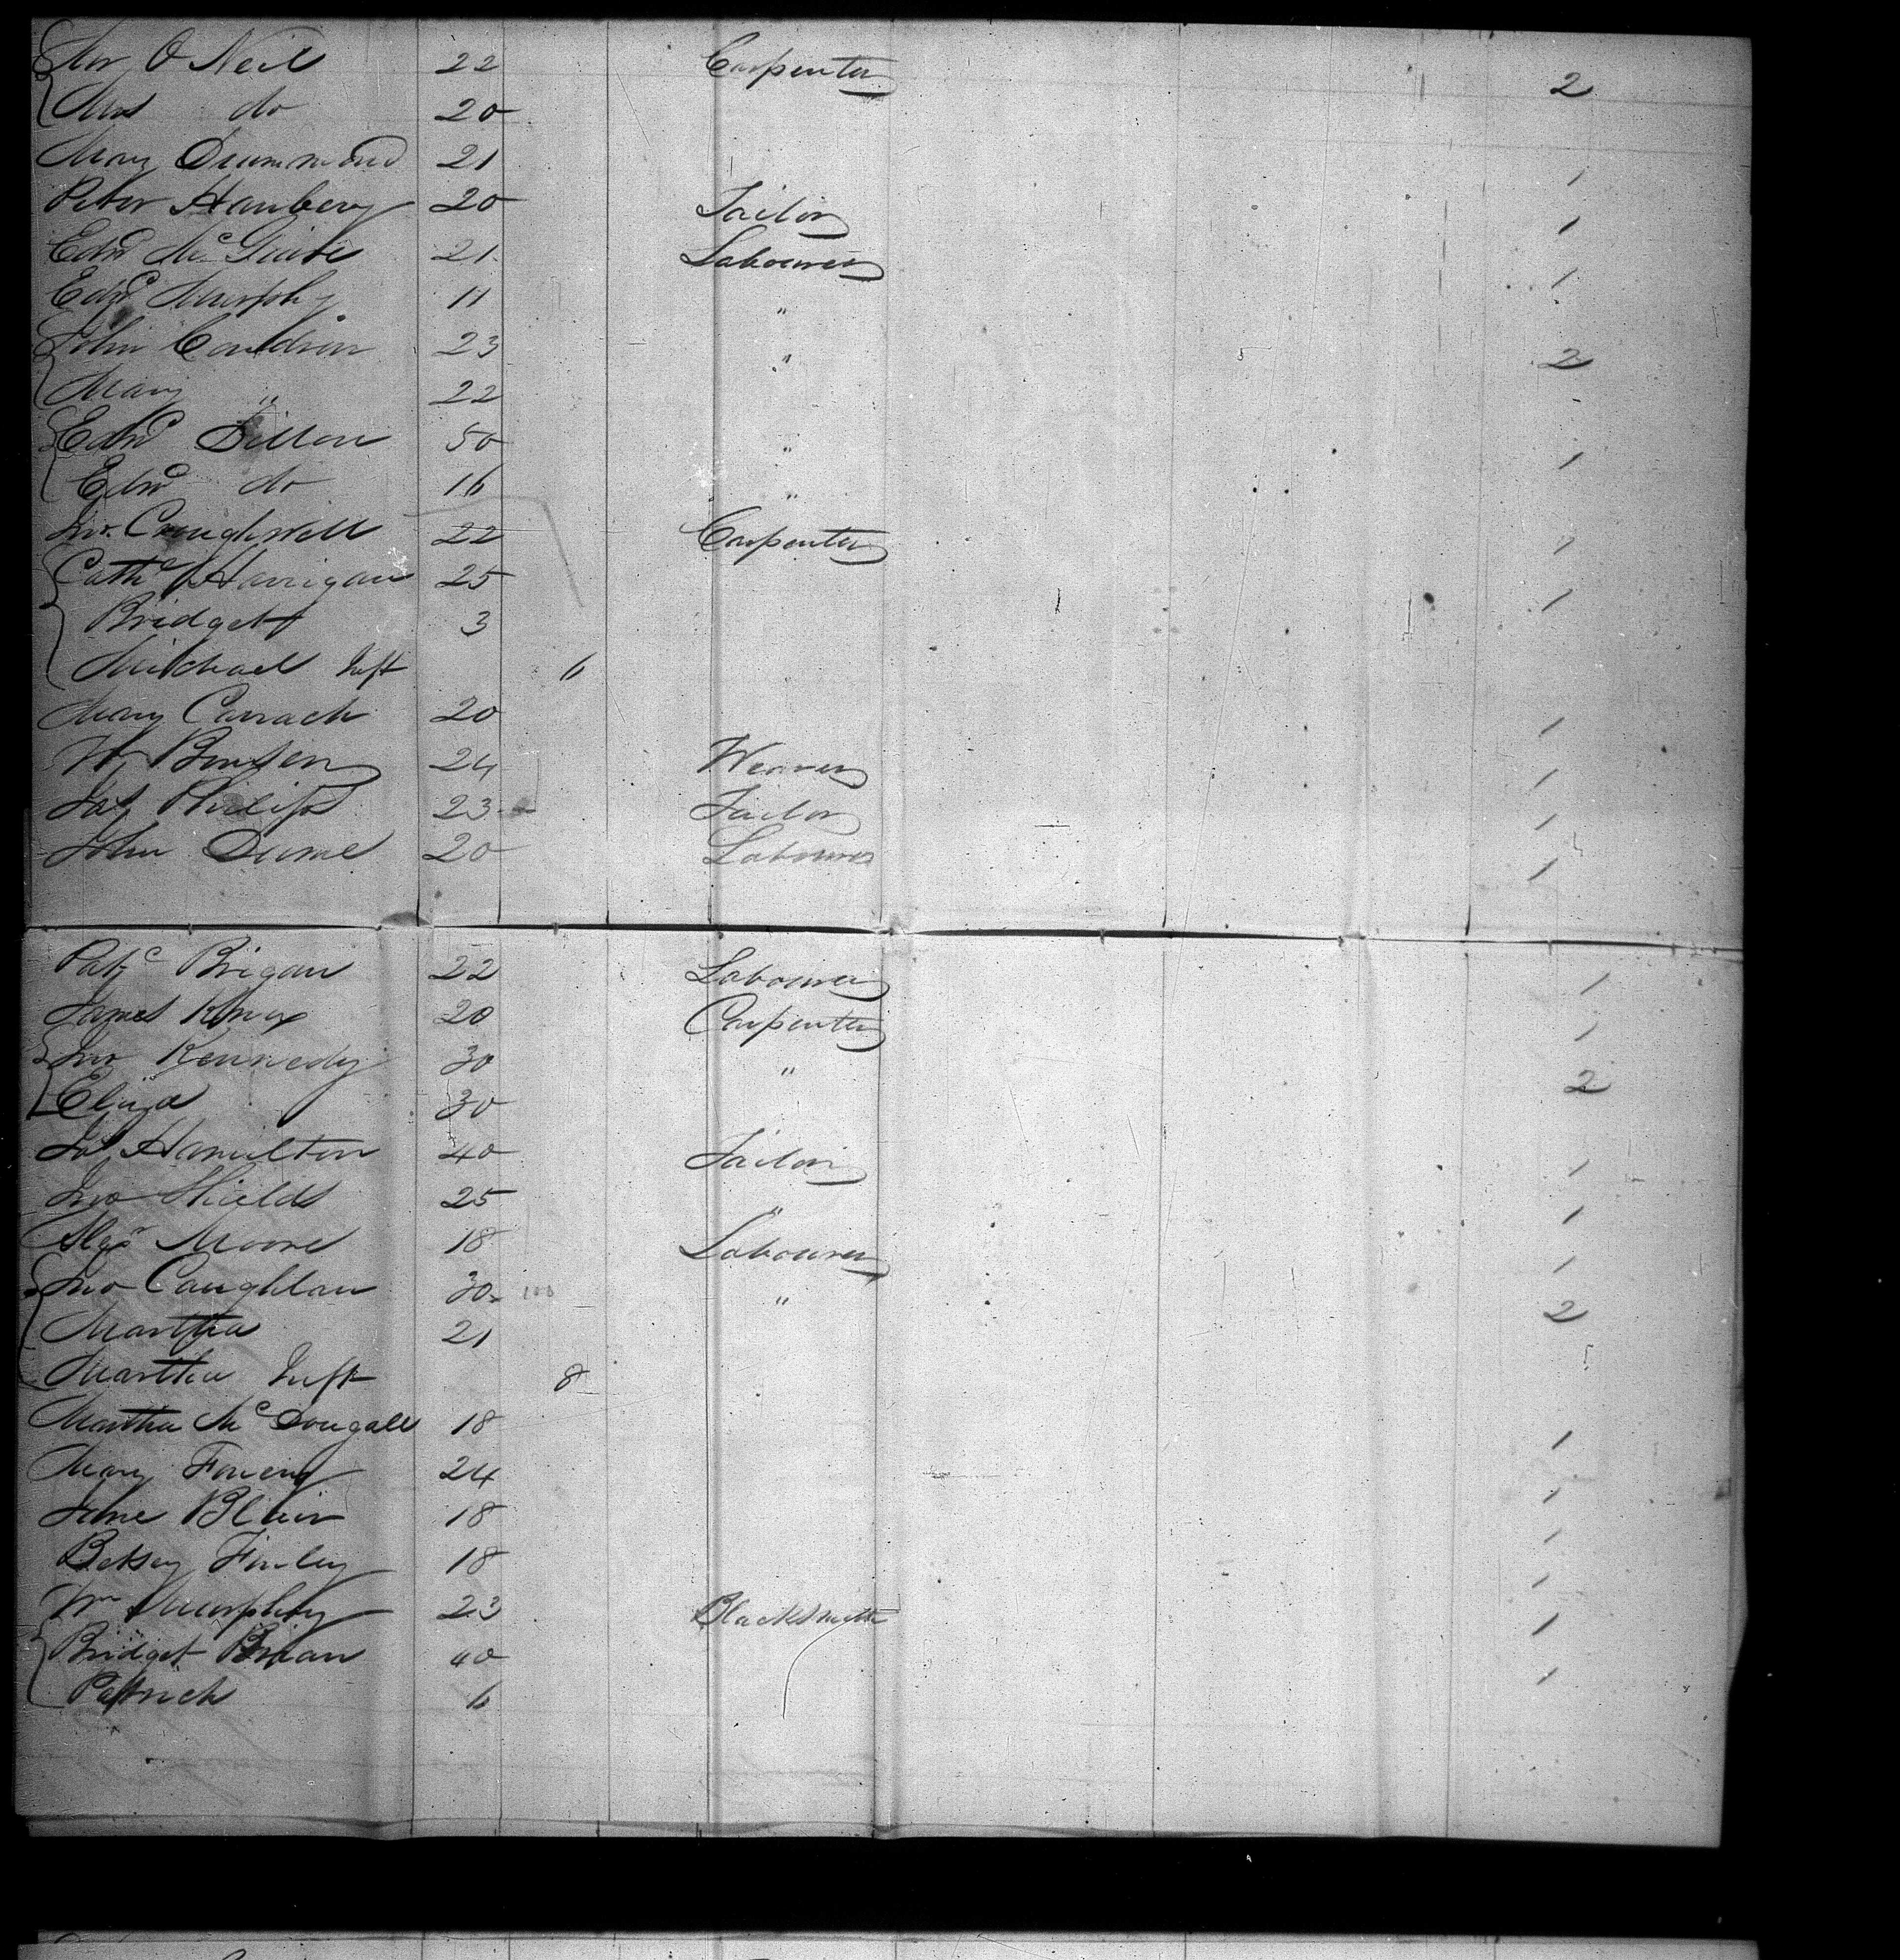 Jno O Neil 22 Carpenter 2
Mrs do 20
Mary Drummond 21 1
Peter Hanbery 20 Tailor 1
Edwd McGuire 21 Labourer 1
Edwd Murphy 11 "
John Condron 23 " 2
Mary " 22
Edwd Dillon 50 " 1
Edwd do 16 "
Jno. Craughwell 22 Carpenter 1
Cathe Harrigan 25 1
Bridget 3
Michael Inft 6
Mary Carrach 20 1
24 Weaver 1
Jas Philips 23 Tailor 1
John 20 Labourer 1
Patk Brigan 22 Labourer 1
James Knox 20 Carpenter 1
Jno Kennedy 30 " 2
Eliza 30
Jas Hamilton 40 Tailor 1
Jno Shields 25 " 1
Alexr Moore 18 Labourer 1
Jno Caughlan 30 " 2
Martha 21
Martha Inft 8
Martha McDougall 18 1
Mary 24 1
Jane Blair 18 1
Betsey Finley 18 1
Wm Murphy 23 Blacksmith 1
Bridget Brian 40 1
Patrick 6